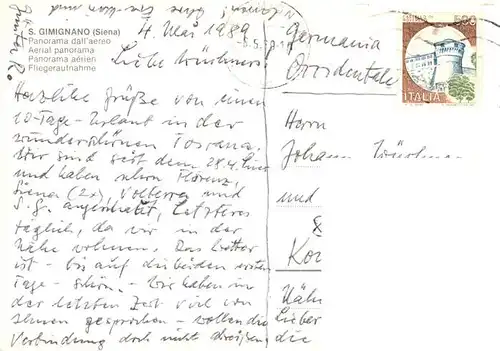 S. GIMIGNANO (Siena)
Panorama dall'aereo
Aerial panorama
Panorama aérien
Fliegeraufnahme
4. Mai 1989
Liebe
Herzliche Grüße von einem
10-Tage-Urlaub in der
wunderschönen Toscana.
Wir sind seit dem 28.4. hier
und haben schon Florenz,
Siena (2x), Volterra und
S.G. angeschaut, letzteres
täglich, da wir in der
Nähe wohnen. Das Wetter
ist - bis auf die beiden ersten
Tage - schön. - Wir haben in
der letzten Zeit viel von
Ihnen gesprochen - wollen die
Verbindung doch nicht abreißen
Germania
Occidentale
ITALIA
Herrn
Johann
und
&
Nähe
Lieber
die